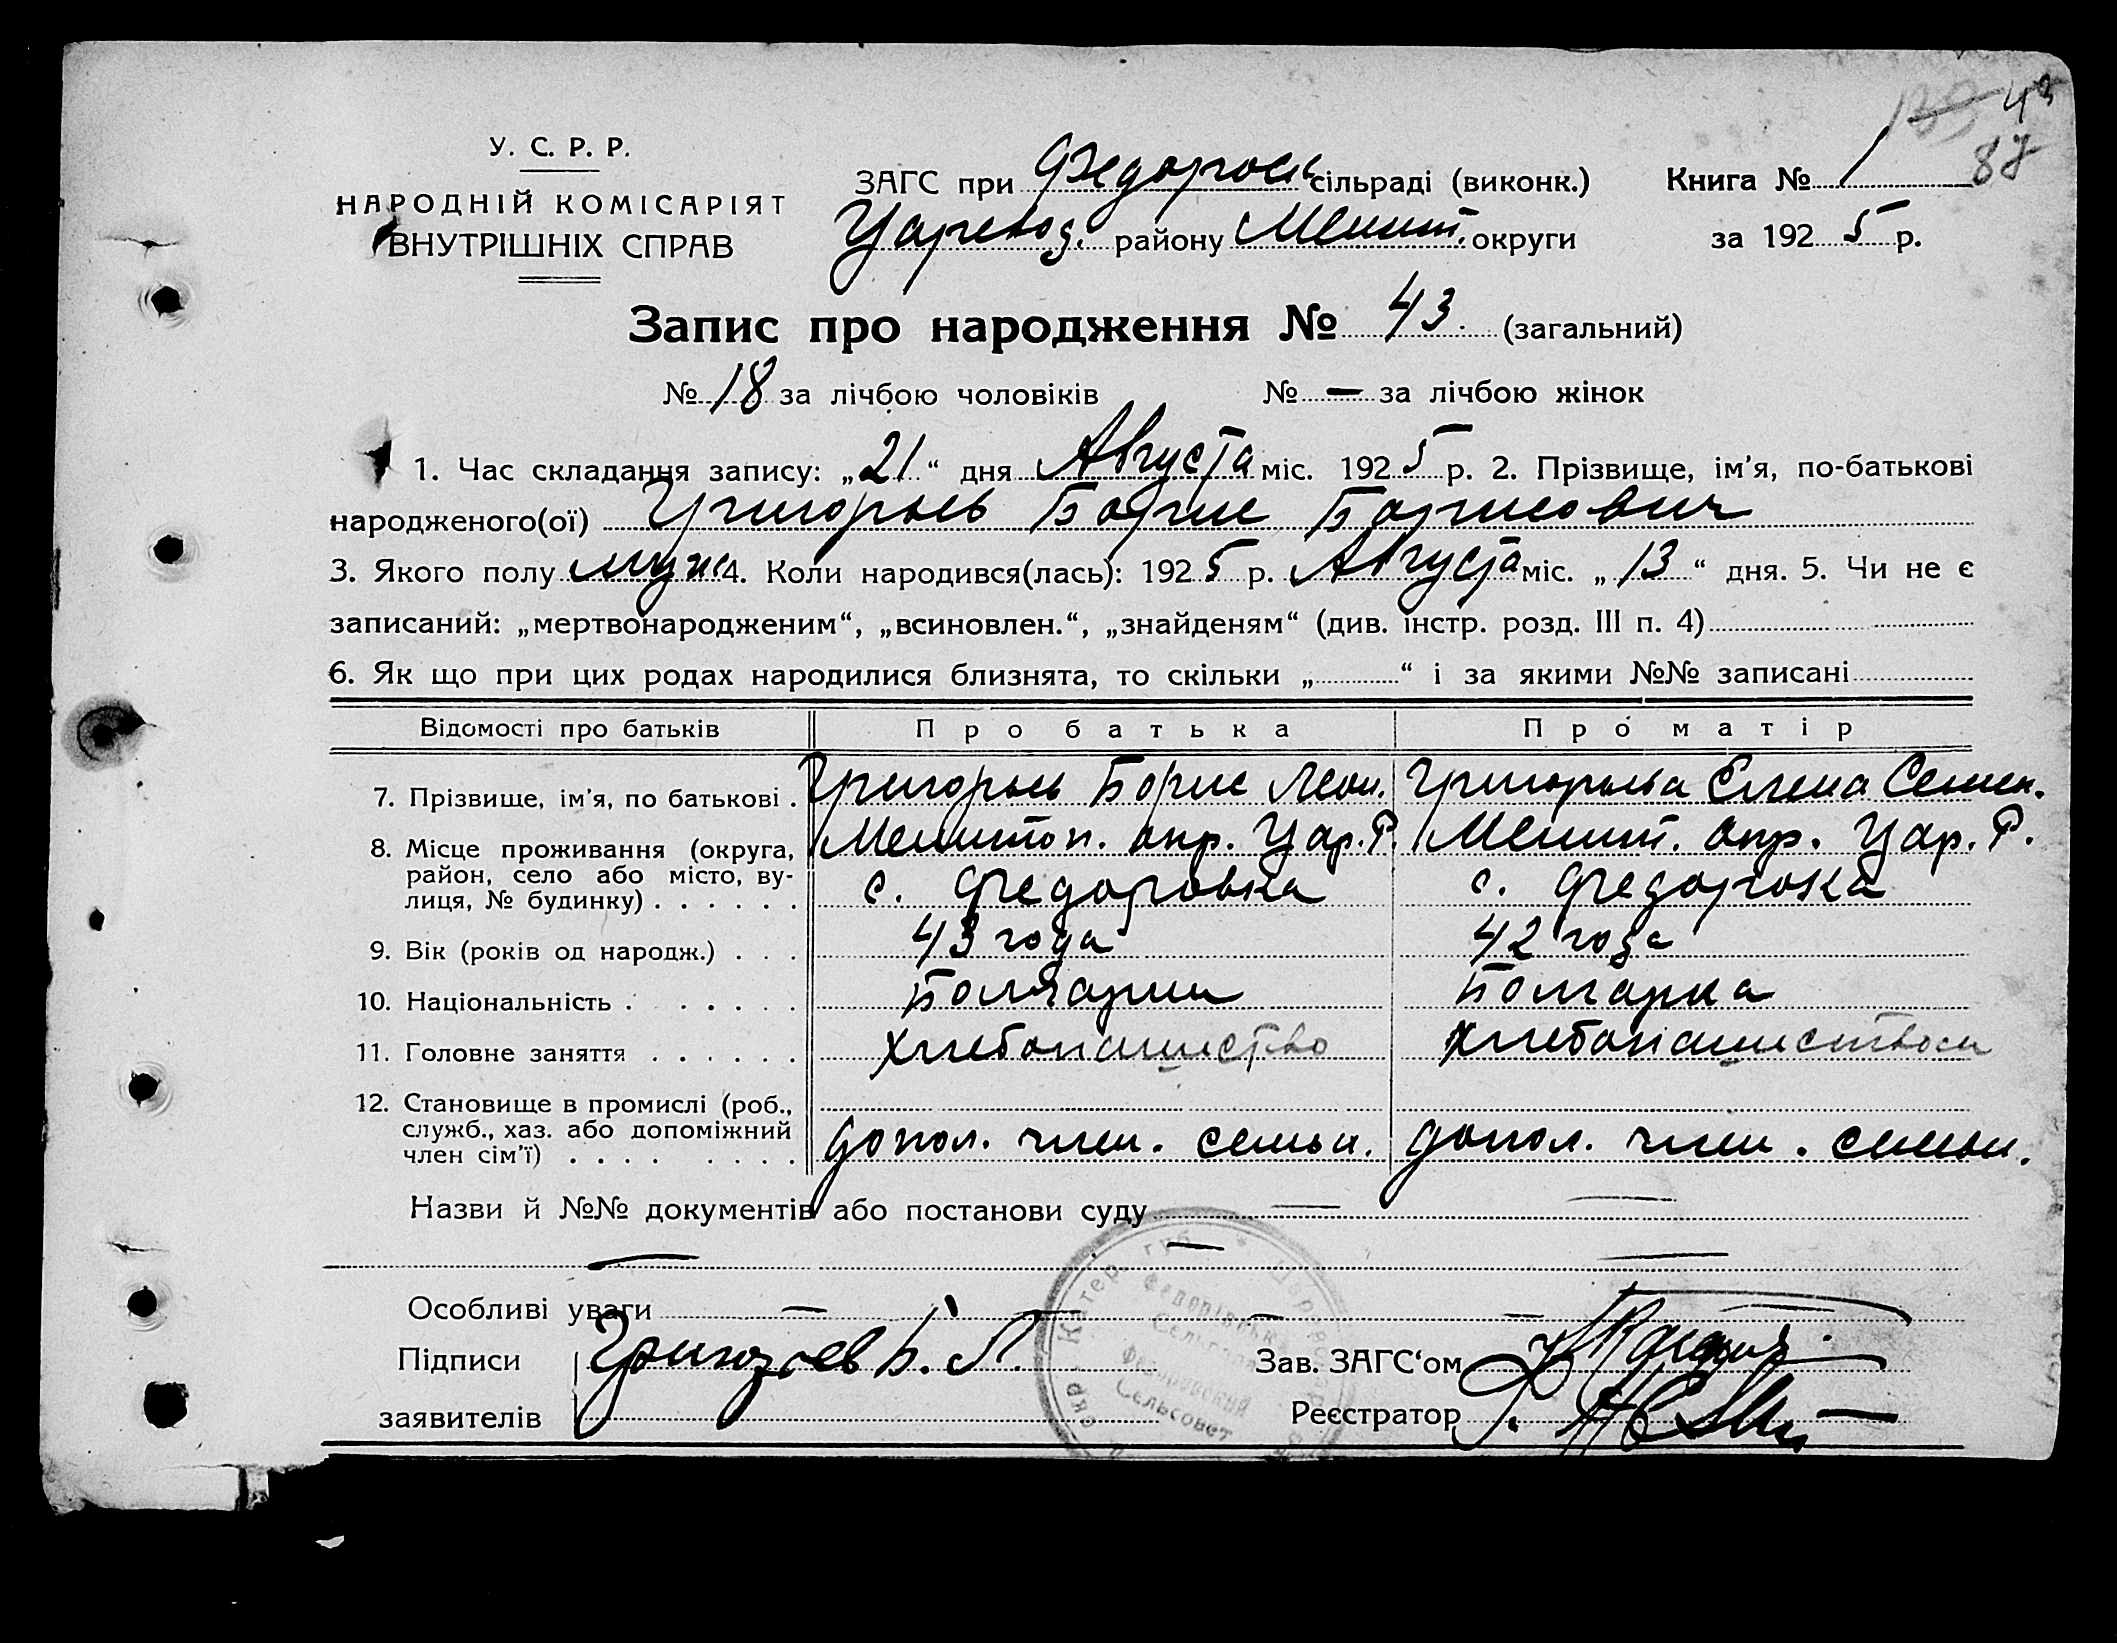 133 43
87
У. С. Р. Р.
НАРОДНІЙ КОМІСАРІЯТ
ВНУТРІШНІХ СПРАВ
ЗАГС при Федоровск сільраді (виконк.) Книга № 1
Царевод. району Мелит. округи за 1925 р.
Запис про народження № 43. (загальний)
№ 18 за лічбою чоловіків № — за лічбою жінок
1. Час складання запису: „21“ дня Августа міс. 1925 р. 2. Прізвище, ім’я, по-батькові
народженого(ої) Григорьев Борис Борисович
3. Якого полу муж 4. Коли народився(лась): 1925 р. Августа міс. „13“ дня. 5. Чи не є
записаний: „мертвонародженим“, „всиновлен.“, „знайденям“ (див. інстр. розд. III п. 4)
6. Як що при цих родах народилися близнята, то скільки „ “ і за якими №№ записані
Відомості про батьків Про батька Про матір
7. Прізвище, ім’я, по батькові . Григорьев Борис Леон. Григорьева Елена Семен.
8. Місце проживання (округа, Мелитоп. окр. Цар. Р. Мелит. окр. Цар. Р.
район, село або місто, ву-
лиця, № будинку) . . . . . . с. Федоровка с. Федоровка
9. Вік (років од народж.) . . . 43 года 42 года
10. Національність . . . . . . Болгарин Болгарка
11. Головне заняття . . . . . . хлебопашество хлебопашеством
12. Становище в промислі (роб.,
служб., хаз. або допоміжний
член сім’ї) . . . . . . . . допол. член. семьи. допол. член. семьи.
Назви й №№ документів або постанови суду — —
— — —
Особливі уваги — — —
Підписи Григорьев Б. Л. Зав. ЗАГС‘ом
заявителів Реєстратор
Катер. губ. * Царево
Федорівськ
Сельрада
Федоровский
Сельсовет